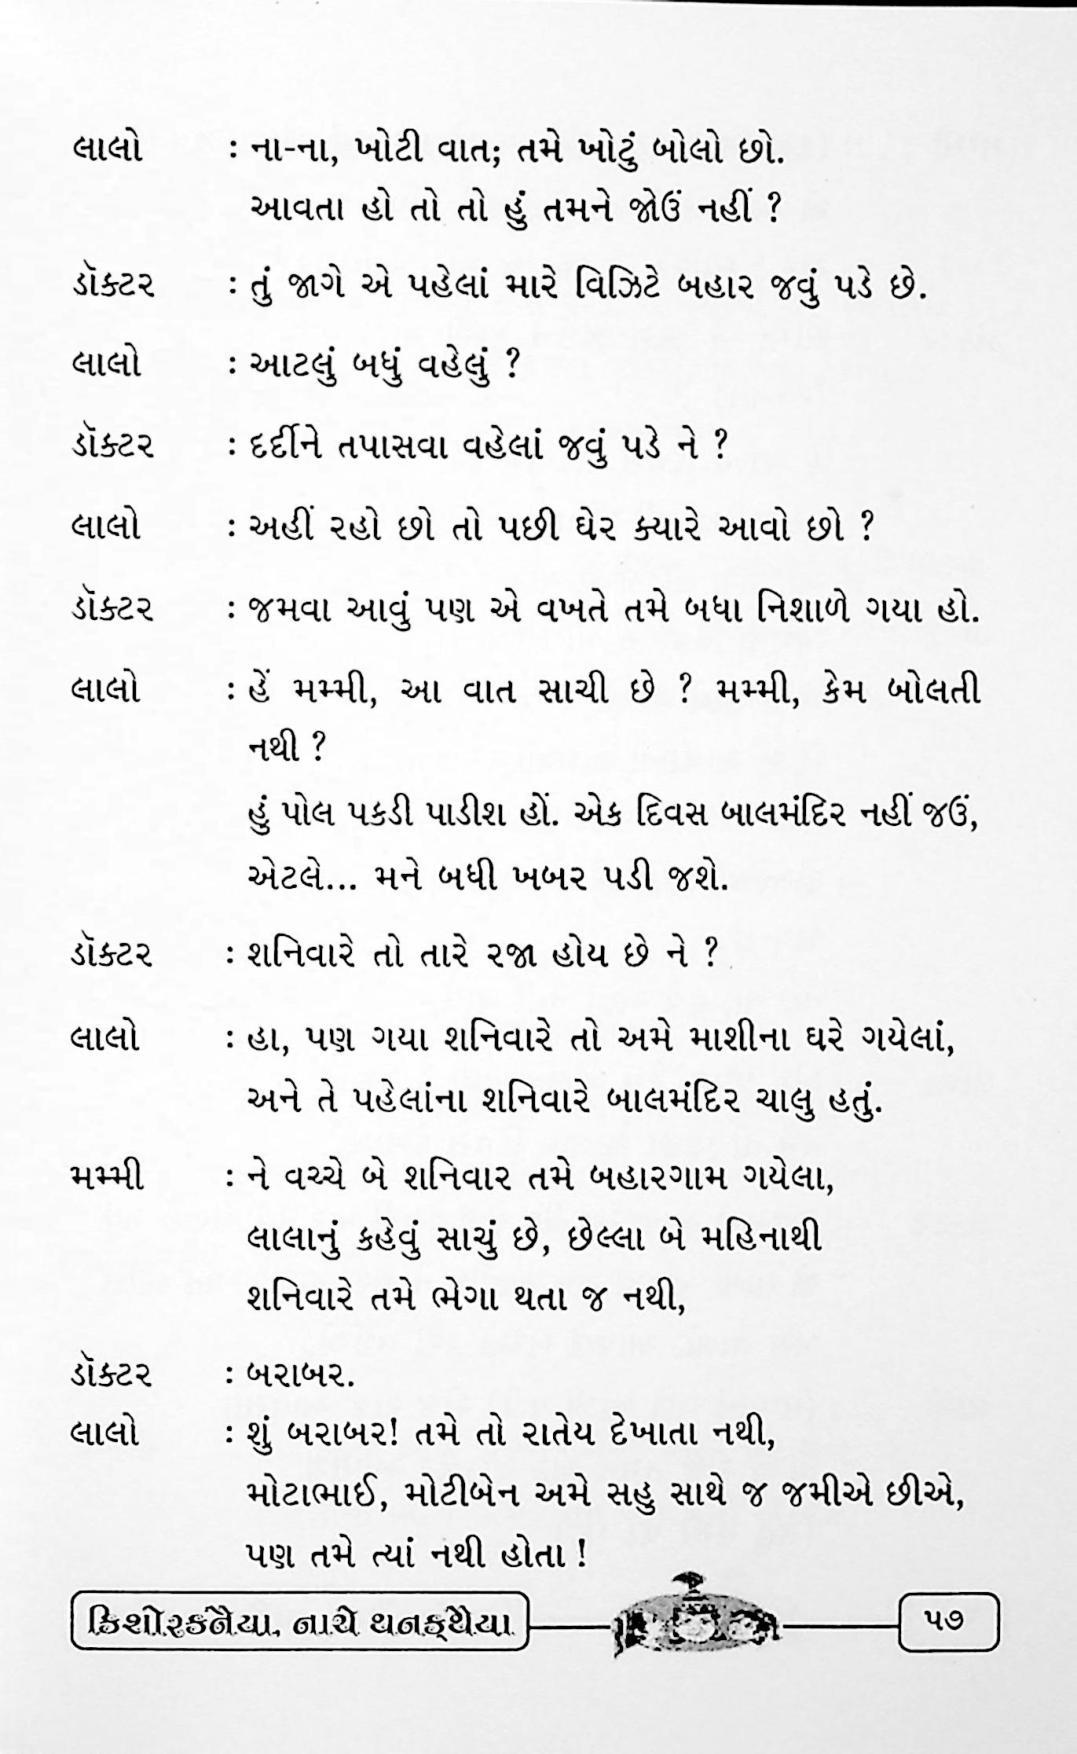 લાલો : ના-ના, ખોટી વાત; તમે ખોટું બોલો છો.
આવતા હો તો તો હું તમને જોઉં નહીં ?
ડૉક્ટર : તું જાગે એ પહેલાં મારે વિઝિટે બહાર જવું પડે છે.
લાલો : આટલું બધું વહેલું ?
ડૉક્ટર : દર્દીને તપાસવા વહેલાં જવું પડે ને ?
લાલો : અહીં રહો છો તો પછી ઘેર ક્યારે આવો છો ?
ડૉક્ટર : જમવા આવું પણ એ વખતે તમે બધા નિશાળે ગયા હો.
લાલો : હેં મમ્મી, આ વાત સાચી છે ? મમ્મી, કેમ બોલતી
નથી ?
હું પોલ પકડી પાડીશ હોં. એક દિવસ બાલમંદિર નહીં જઉં,
એટલે... મને બધી ખબર પડી જશે.
ડૉક્ટર : શનિવારે તો તારે રજા હોય છે ને ?
લાલો : હા, પણ ગયા શનિવારે તો અમે માશીના ઘરે ગયેલાં,
અને તે પહેલાંના શનિવારે બાલમંદિર ચાલુ હતું.
મમ્મી : ને વચ્ચે બે શનિવાર તમે બહારગામ ગયેલા,
લાલાનું કહેવું સાચું છે, છેલ્લા બે મહિનાથી
શનિવારે તમે ભેગા થતા જ નથી,
ડૉક્ટર : બરાબર.
લાલો : શું બરાબર! તમે તો રાતેય દેખાતા નથી,
મોટાભાઈ, મોટીબેન અમે સહુ સાથે જ જમીએ છીએ,
પણ તમે ત્યાં નથી હોતા !
કિશોરકનૈયા, નાચે થનક્થૈયા ૫૭